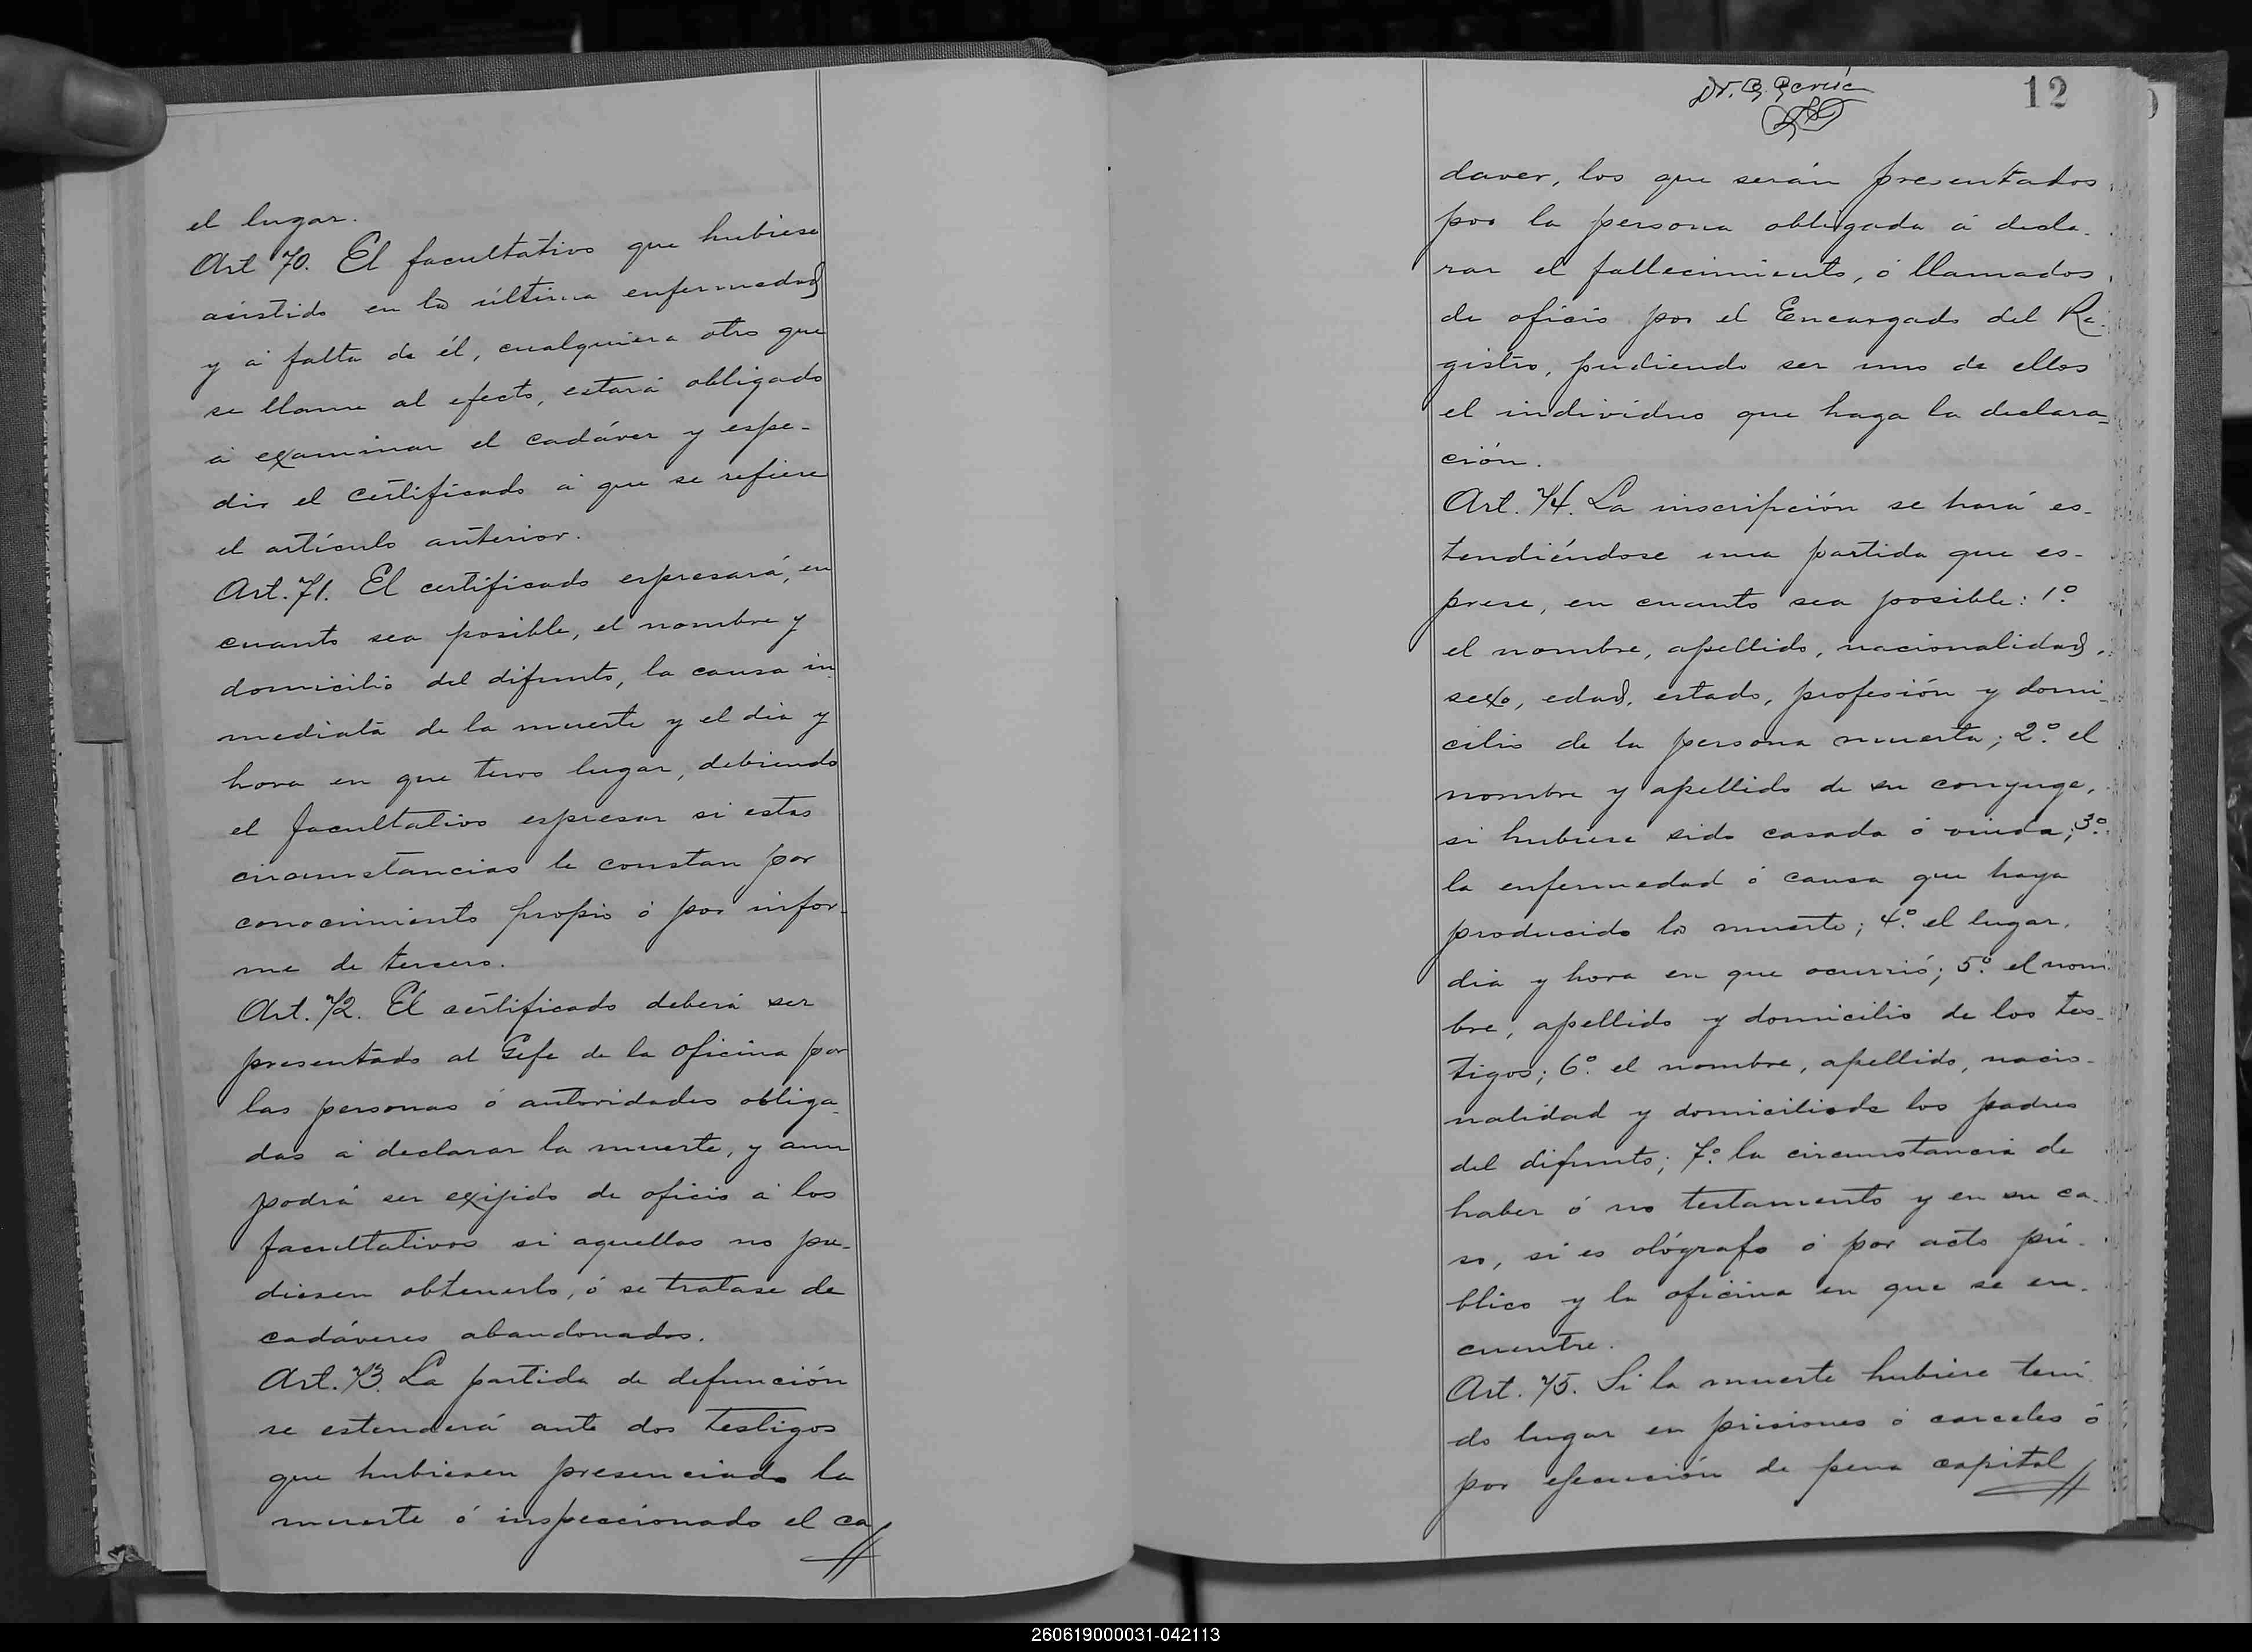 el lugar.
Art 70. El facultativo que hubiese
asistido en la última enfermedad
y á falta de él, cualquiera otro que
se llame al efecto, estará obligado
á examinar el cadáver y espe-
dir el certificado á que se refiere
el artículo anterior.
Art. 71. El certificado espresará, en
cuanto sea posible, el nombre y
domicilio del difunto, la causa in
mediata de la muerte y el dia y
hora en que tuvo lugar, debiendo
el facultativo espresar si estas
circumstancias le constan por
conocimiento propio ó por infor-
me de tercero.
Art. 72. El certificado deberá ser
presentado al Gefe de la oficina por
las personas ó autoridades obliga-
das á declarar la muerte, y aun
podrá ser exijido de oficio á los
facultativos si aquellas no pu-
diesen obtenerlo, ó se tratase de
cadáveres abandonados.
Art. 73. La partida de defunción
se estenderá ante dos testigos
que hubiesen presenciado la
muerte ó inspeccionado el ca
Dr. B. García
12
daver, los que serán presentados
por la persona obligada á decla-
rar el fallecimiento, ó llamados
de oficio por el Encargado del Re-
gistro, pudiendo ser uno de ellos
el individuo que haga la declara-
ción.
Art. 74. La inscripción se hará es-
tendiéndose una partida que es-
prese, en cuanto sea posible: 1º
el nombre, apellido, nacionalidad,
sexo, edad, estado, profesión y domi-
cilio de la persona muerta; 2º. el
nombre y apellido de su conyuge,
si hubiere sido casada ó viuda; 3º.
la enfermedad ó causa que haya
producido la muerte; 4º. el lugar,
dia y hora en que ocurrió; 5º. el nom
bre, apellido y domicilio de los tes-
tigos; 6º. el nombre, apellido, nacio-
nalidad y domicilio de los padres
del difunto; 7º. la circumstancia de
haber ó no testamento y en su ca-
so, si es ológrafo ó por acto pú-
blico y la oficina en que se en-
cuentre.
Art. 75. Si la muerte hubiere teni
do lugar en prisiones ó carceles ó
por ejecución de pena capital
260619000031-042113